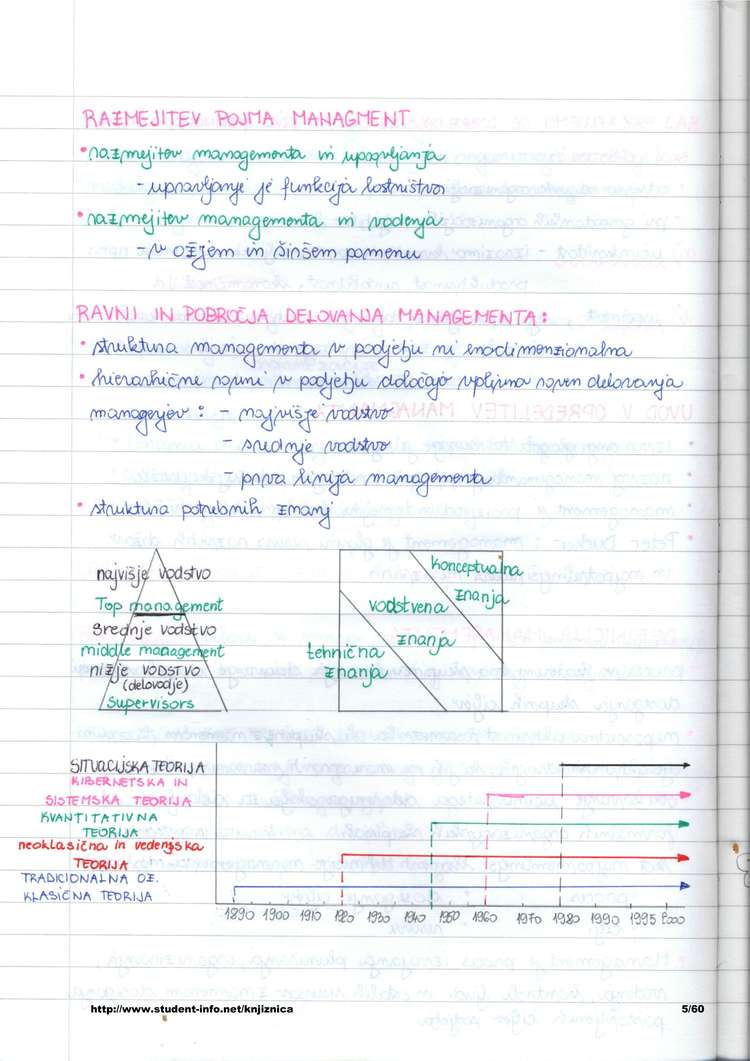 RAZMEJITEV POJMA MANAGMENT
• razmejitev managementa in upravljanja
- upravljanje je funkcija lastništva
• razmejitev managementa in vodenja
- v ožjem in širšem pomenu
RAVNI IN PODROČJA DELOVANJA MANAGEMENTA:
• struktura managementa v podjetju ni enodimenzionalna
• hierarhične ravni v podjetju določajo vplivna raven delovanja
managerjev: - najvišje vodstvo
- srednje vodstvo
- prva linija managementa
• struktura potrebnih znanj
najvišje vodstvo
Top management
srednje vodstvo
middle management
nižje VODSTVO
(delovodje)
Supervisors
konceptualna
znanja
vodstvena
znanja
tehnična
znanja
SITUACIJSKA TEORIJA
KIBERNETSKA IN
SISTEMSKA TEORIJA
KVANTITATIVNA
TEORIJA
neoklasična in vedenjska
TEORIJA
TRADICIONALNA OZ.
KLASIČNA TEORIJA
1890 1900 1910 1920 1930 1940 1950 1960 1970 1980 1990 1995 2000
http://www.student-info.net/knjiznica 5/60